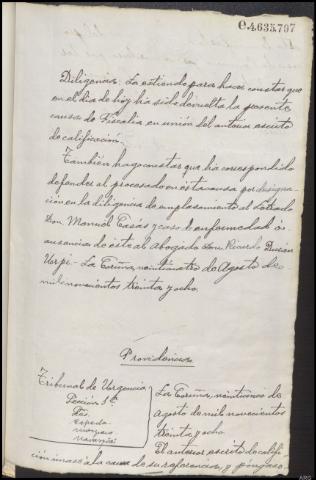 C.4.635,797
Diligencia: La extiendo para hacer constar que
en el dia de hoy ha sido devuelta la presente
causa de Fiscalia en unión del anterior escrito
de calificación.
También hago constar que ha correspondido
defender al procesado en esta causa por designa-
ción en la diligencia de emplazamiento al Letrado
Don Manuel Casás y caso de enfermedad o
ausencia de éste al Abogado Don Ricardo
Varpi.- La Coruña, veintiuatro de Agosto de
mil novecientos treinta y ocho.
Providencia
Tribunal de Urgencia
Sección 1ª
Sres.
Cepeda
La Coruña, veinticinco de
Agosto de mil novecientos
treinta y ocho.
El anterior escrito de califi-
cación únase a la causa de su referencia, y póngase